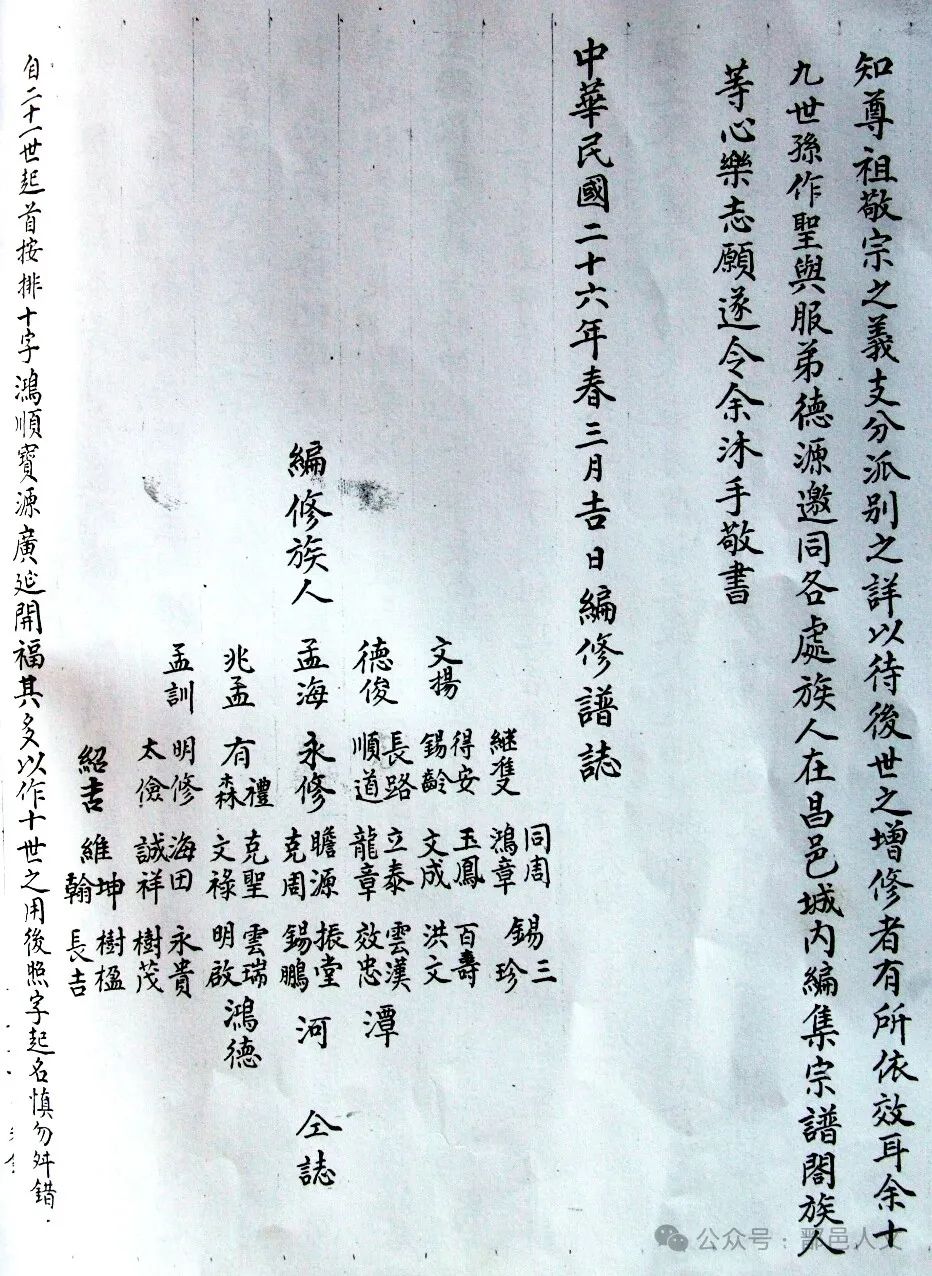 知尊祖敬宗之義支分派别之詳以待後世之增修者有所依效耳余十
九世孫作聖與服弟德源邀同各處族人在昌邑城内編集宗譜閤族人
等心樂志願遂令余沐手敬書
中華民國二十六年春三月吉日編修譜誌
編修族人
同周 錫三
継雙 鴻章 珍
得安 玉鳳 百壽
文揚 錫齡 文成 洪文
長路 立泰 雲漢
德俊 順道 龍章 效忠 潭
瞻源 振堂
孟海 永修 克周 錫鵬 河 仝誌
禮 克聖 雲瑞
兆孟 有森 文祿 明啟 鴻德
明修 海田 永貴
孟訓 太儉 誠祥 樹茂
坤 樹楹
紹吉 維翰 長吉
自二十一世起首按排十字鴻順寶源廣延開福其多以作十世之用後照字起名慎勿舛錯.
公众号：鄑邑人文